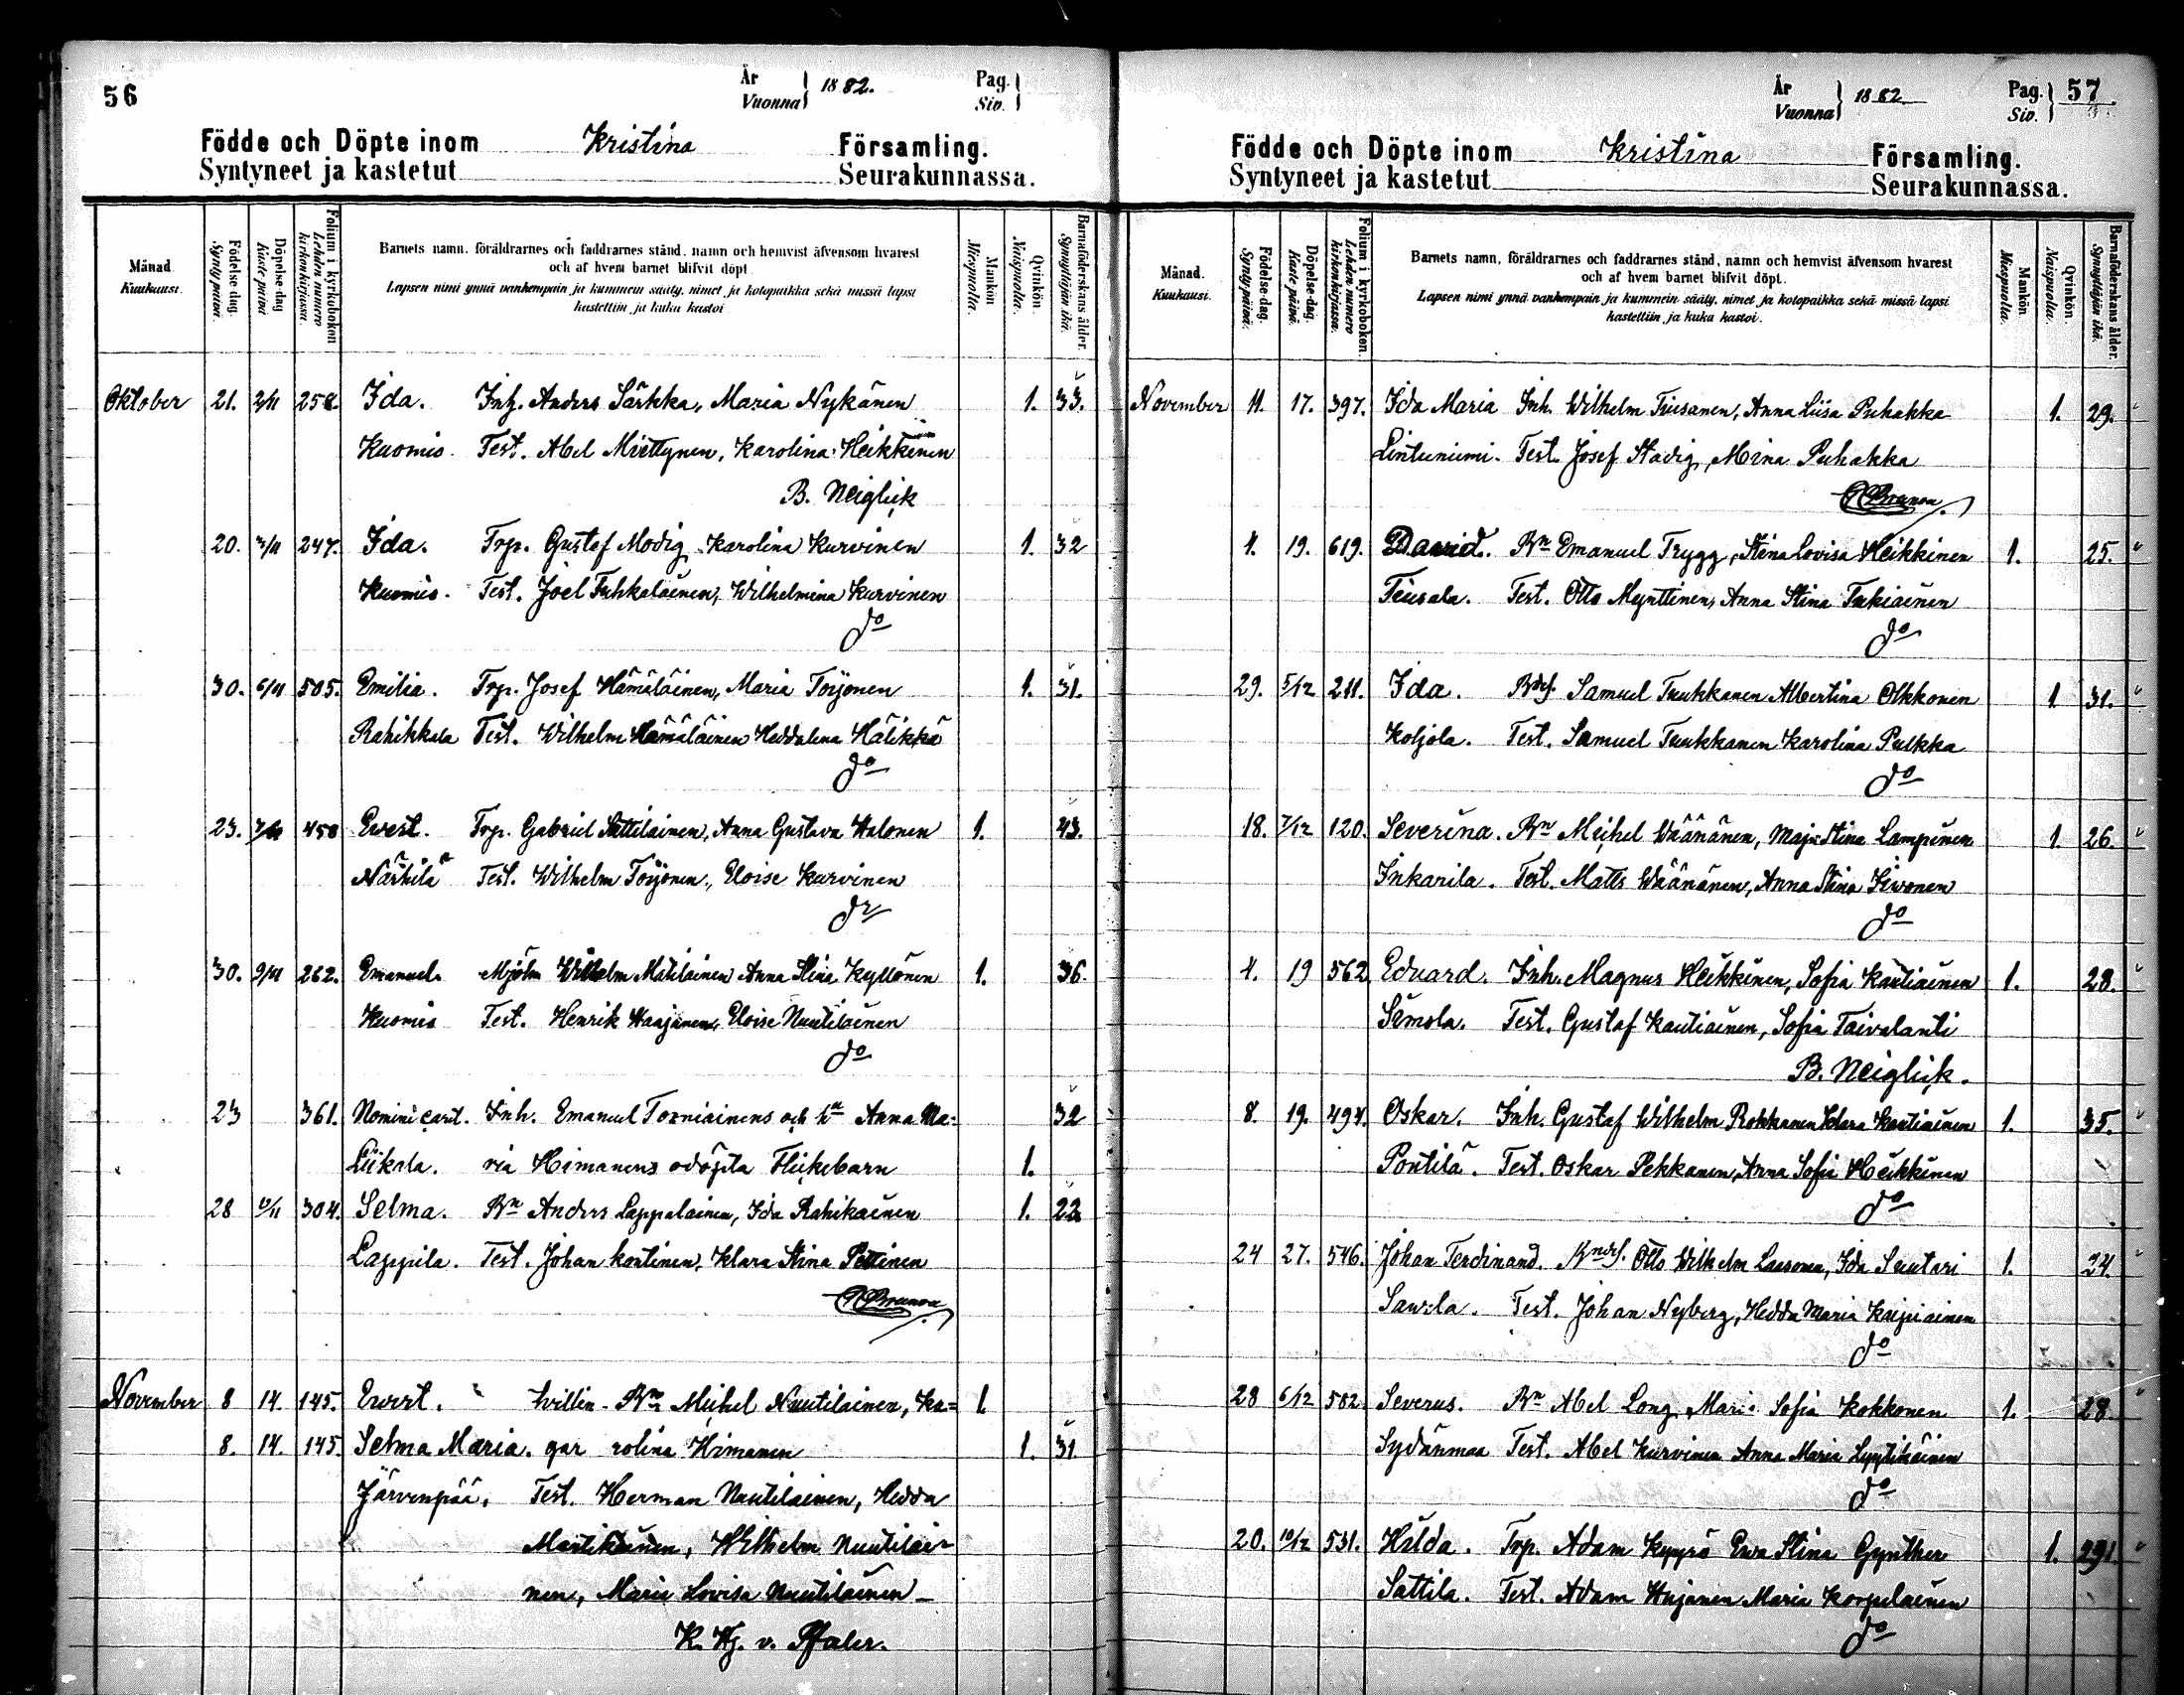 56
År Vuonna 1882.
Pag. Siv.
Födde och Döpte inom Kristina Församling.
Syntyneet ja kastetut Seurakunnassa.
Månad. Kuukausi.
Födelse-dag. Synty päivä.
Döpelse-dag Kaste päivä
Folium i kyrkoboken Lehden numero kirkonkirjassa.
Barnets namn, föräldrarnes och faddrarnes stånd, namn och hemvist äfvensom hvarest
och af hvem barnet blifvit döpt.
Lapsen nimi ynnä vanhempain ja kummein sääty, nimet ja kotopaikka sekä missä lapsi
kastettiin ja kuka kastoi
Mankön Miespuolia.
Qvinkön. Naispuolia.
Barnaföderskans ålder. Synnyttäjän ikä.
Oktober 21. 2/11 258. Ida. Inh. Anders Särkkä, Maria Nykänen 1. 33.
Kuomio. Test. Abel Miettynen, Karolina Heikkinen
B. Neiglick
20. 3/11 247. Ida. Trp. Gustaf Modig Karolina Kurvinen 1. 32
Kuomio. Test. Joel Tuhkalainen, Wilhelmina Kurvinen
do
30. 6/11 505. Emilia. Trp. Josef Hämäläinen, Maria Töyonen 1. 31.
Rahikkala Test. Wilhelm Hämäläinen Heddalena Hälikkä
do
23. 7/11 458 Evert. Trp. Gabriel Sattilainen, Anna Gustava Halonen 1. 43.
Närhilä Test. Wilhelm Töyonen, Eloise Kurvinen
do
30. 9/11 262. Emanuel. Mjöln Wilhelm Matilainen Anna Stina Kyllönen 1. 36.
Kuomio Test. Henrik Haajanen, Eloise Nuutilainen
do
23 361. Nomine carit. Inh. Emanuel Torniainens och hn Anna Ma- 32
Liikala. ria Himanens odöpta Flickebarn 1.
28 10/11 304. Selma. Bn Anders Lappalainen, Ida Rahikainen 1. 22
Lappila. Test. Johan Kontinen, Klara Stina Pettinen
November 8 14. 145. Evert. tvillin- Bn Michel Nuutilainen, Ka= 1.
8. 14. 145. Selma Maria. gar rolina Himanen 1. 31
Järvenpää. Test. Herman Nuutilainen, Hedda
Martikainen, Wilhelm Nuutilai-
nen, Maria Lovisa Nuutilainen
K. Hj. v. Pfaler.
År Vuonna 1882
Pag. Siv. 57
Födde och Döpte inom Kristina Församling.
Syntyneet ja kastetut Seurakunnassa.
Månad. Kuukausi.
Födelse-dag. Synty päivä.
Döpelse-dag. Kaste päivä.
Folium i kyrkoboken. Lehden numero kirkonkirjassa.
Barnets namn, föräldrarnes och faddrarnes stånd, namn och hemvist äfvensom hvarest
och af hvem barnet blifvit döpt.
Lapsen nimi ynnä vanhempain ja kummein sääty, nimet ja kotopaikka sekä missä lapsi
kastettiin ja kuka kastoi.
Mankön Miespuolia.
Qvinkön. Naispuolia.
Barnaföderskans ålder. Synnyttäjän ikä.
November 11. 17. 397. Ida Maria Inh. Wilhelm Tiusanen, Anna Liisa Puhakka 1. 29.
Lintuniemi. Test. Josef Stadig, Mina Puhakka
4. 19. 619. David. Bn Emanuel Trygg, Stina Lovisa Heikkinen 1. 25.
Teusala. Test. Otto Mynttinen, Anna Stina Tukiainen
do
29. 5/12 211. Ida. Samuel Tuukkanen Albertina Olkkonen 1. 31.
Koljola. Test. Samuel Tuukkanen Karolina Pulkka
do
18. 7/12 120. Severina. Bn Michel Wäänänen, Maja Stina Lampinen 1. 26.
Inkarila. Test. Matts Wäänänen, Anna Stina Siwonen
do
4. 19 562 Eduard. Inh. Magnus Heikkinen, Sofia Kautiainen 1. 28.
Simola. Test. Gustaf Kautiainen, Sofia Taivalanti
B. Neiglick.
8. 19. 494. Oskar. Inh. Gustaf Wilhelm Rokkanen Klara Kautiainen 1. 35.
Pontilä. Test. Oskar Pekkanen, Anna Sofia Heikkinen
do
24 27. 546. Johan Ferdinand. Otto Wilhelm Lausonen, Ida Suutari 1. 24.
Test. Johan Nyberg, Hedda Maria Kaipiainen
do
28 6/12 582. Severus. Bn Abel Long, Maria Sofia Kokkonen 1. 28.
Sydänmaa Test. Abel Kurvinen Anna Maria Lyytikäinen
do
20. 10/12 531. Hilda. Trp. Adam Kyyrö Ewa Stina Gynther 1. 29.
Sattila. Test. Adam Hujanen Maria Korpelainen
do